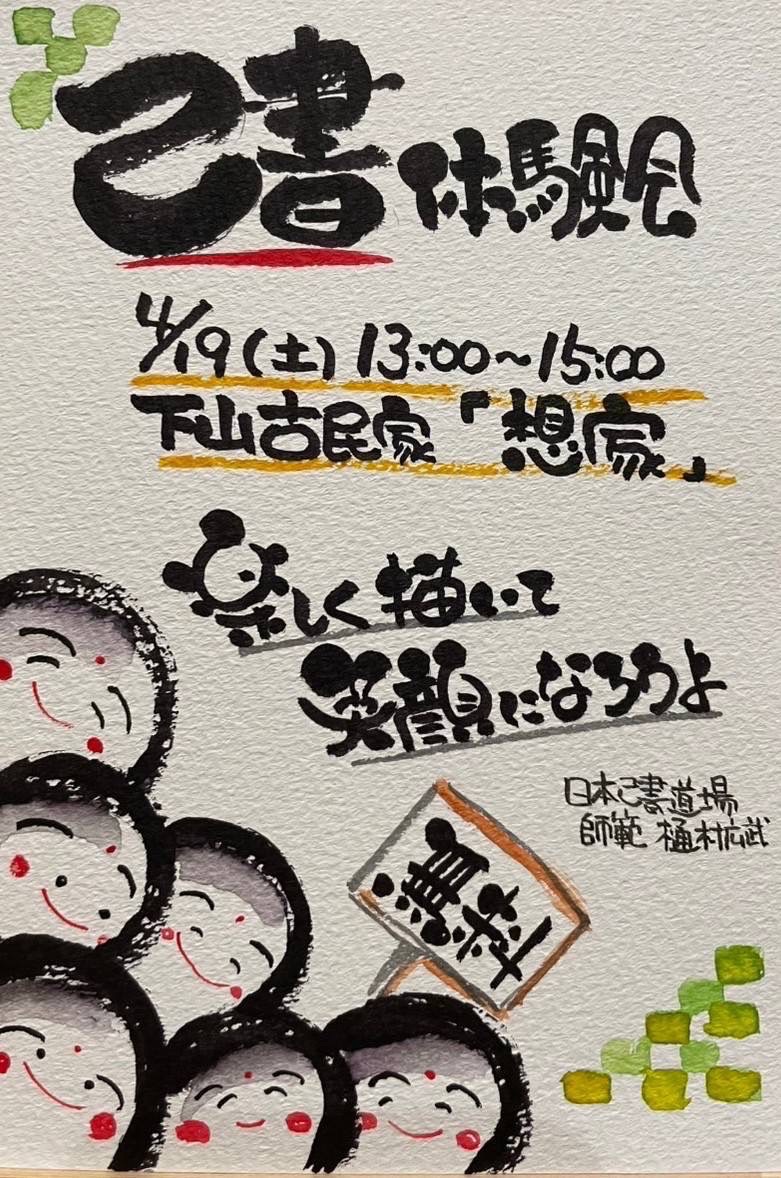 己書 体験会
4/19(土) 13:00~15:00
下山古民家「想家」
楽しく描いて
笑顔になろうよ
日本己書道場
師範 樋村広武